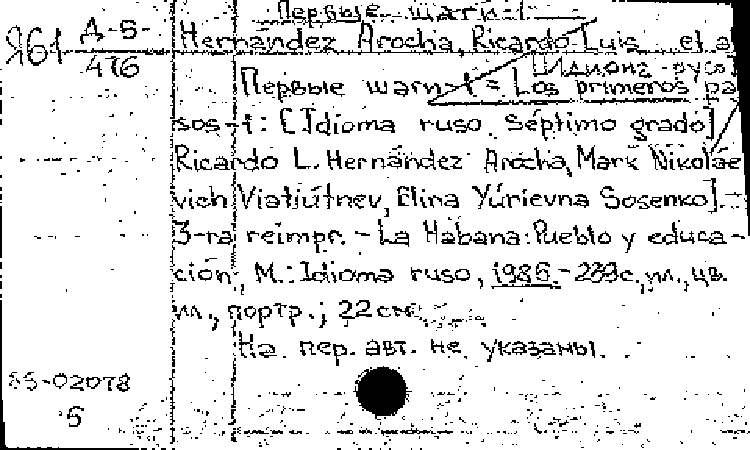 Первые шаги-1
Я61 Д-5-
476
Hernández Arocha, Ricardo Luis et a
Первые шаги-1 = Los primeros pa
sos-1: [Idioma ruso. Séptimo grado]
Ricardo L. Hernández Arocha, Mark Nikoláe
vich Viatiútnev, Elina Yúrievna Sosenko].-
3-ra reimpr. - La Habana: Pueblo y educa-
ción; M.: Idioma ruso, 1986.- с., ил., цв.
ил., портр.; 22 см.
На пер. авт. не указаны.
-02078
5